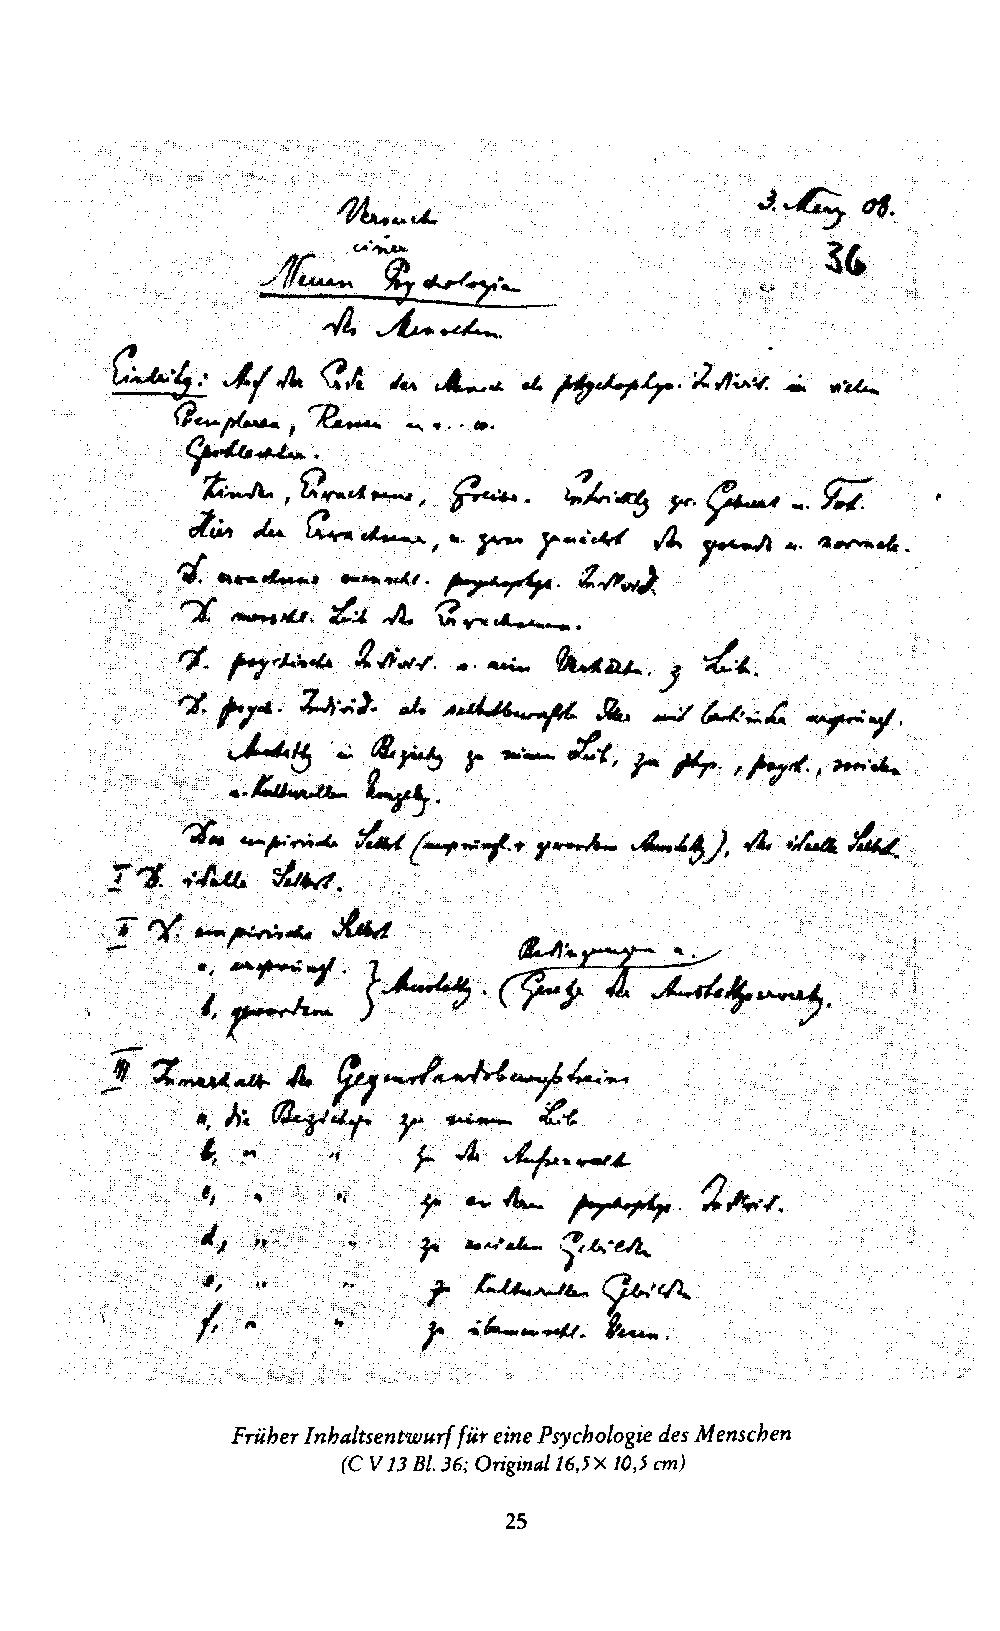 Versuch
3. März 08.
einer
36
Neuen Psychologie
des Menschen.
Einleitg: Auf der Erde der Mensch als psychophys. Individ. in vielen
Exemplaren, Rassen u. s. w.
Geschlechter.
Kinder, Erwachsene, Greise. Entwicklg zw. Geburt u. Tod.
Hier der Erwachsene, u. zwar zunächst der gesunde u. normale.
D. erwachsene menschl. psychophys. Individ.
D. menschl. Leib des Erwachsenen.
D. psychische Individ. u. sein Verhältn. z Leib.
D. psych. Individ. als selbstbewußtes Ich mit bestimmter ursprüngl.
Ausstattg in Beziehg zu seinem Leib, zur phys., psych., sozialen
u. kulturellen Umgebg.
Das empirische Selbst (ursprüngl. u gewordene Ausstattg), das ideelle Selbst.
I D. ideelle Selbst.
II D. empirische Selbst
Bedingungen u.
a, ursprüngl.
b, gewordene } Ausstattg. (Gesetze der
III Innerhalb des Gegenstandsbewußtseins
a, die Beziehgn zu seinem Leib
b, " " zu der Außenwelt
c, " " zu andern psychophys. Individ.
d, " " zu sozialen Gebilden
e, " " zu kulturellen Gebilden
f, " " zu übermenschl. Wesen.
Früher Inhaltsentwurf für eine Psychologie des Menschen
(C V 13 Bl. 36; Original 16,5 × 10,5 cm)
25